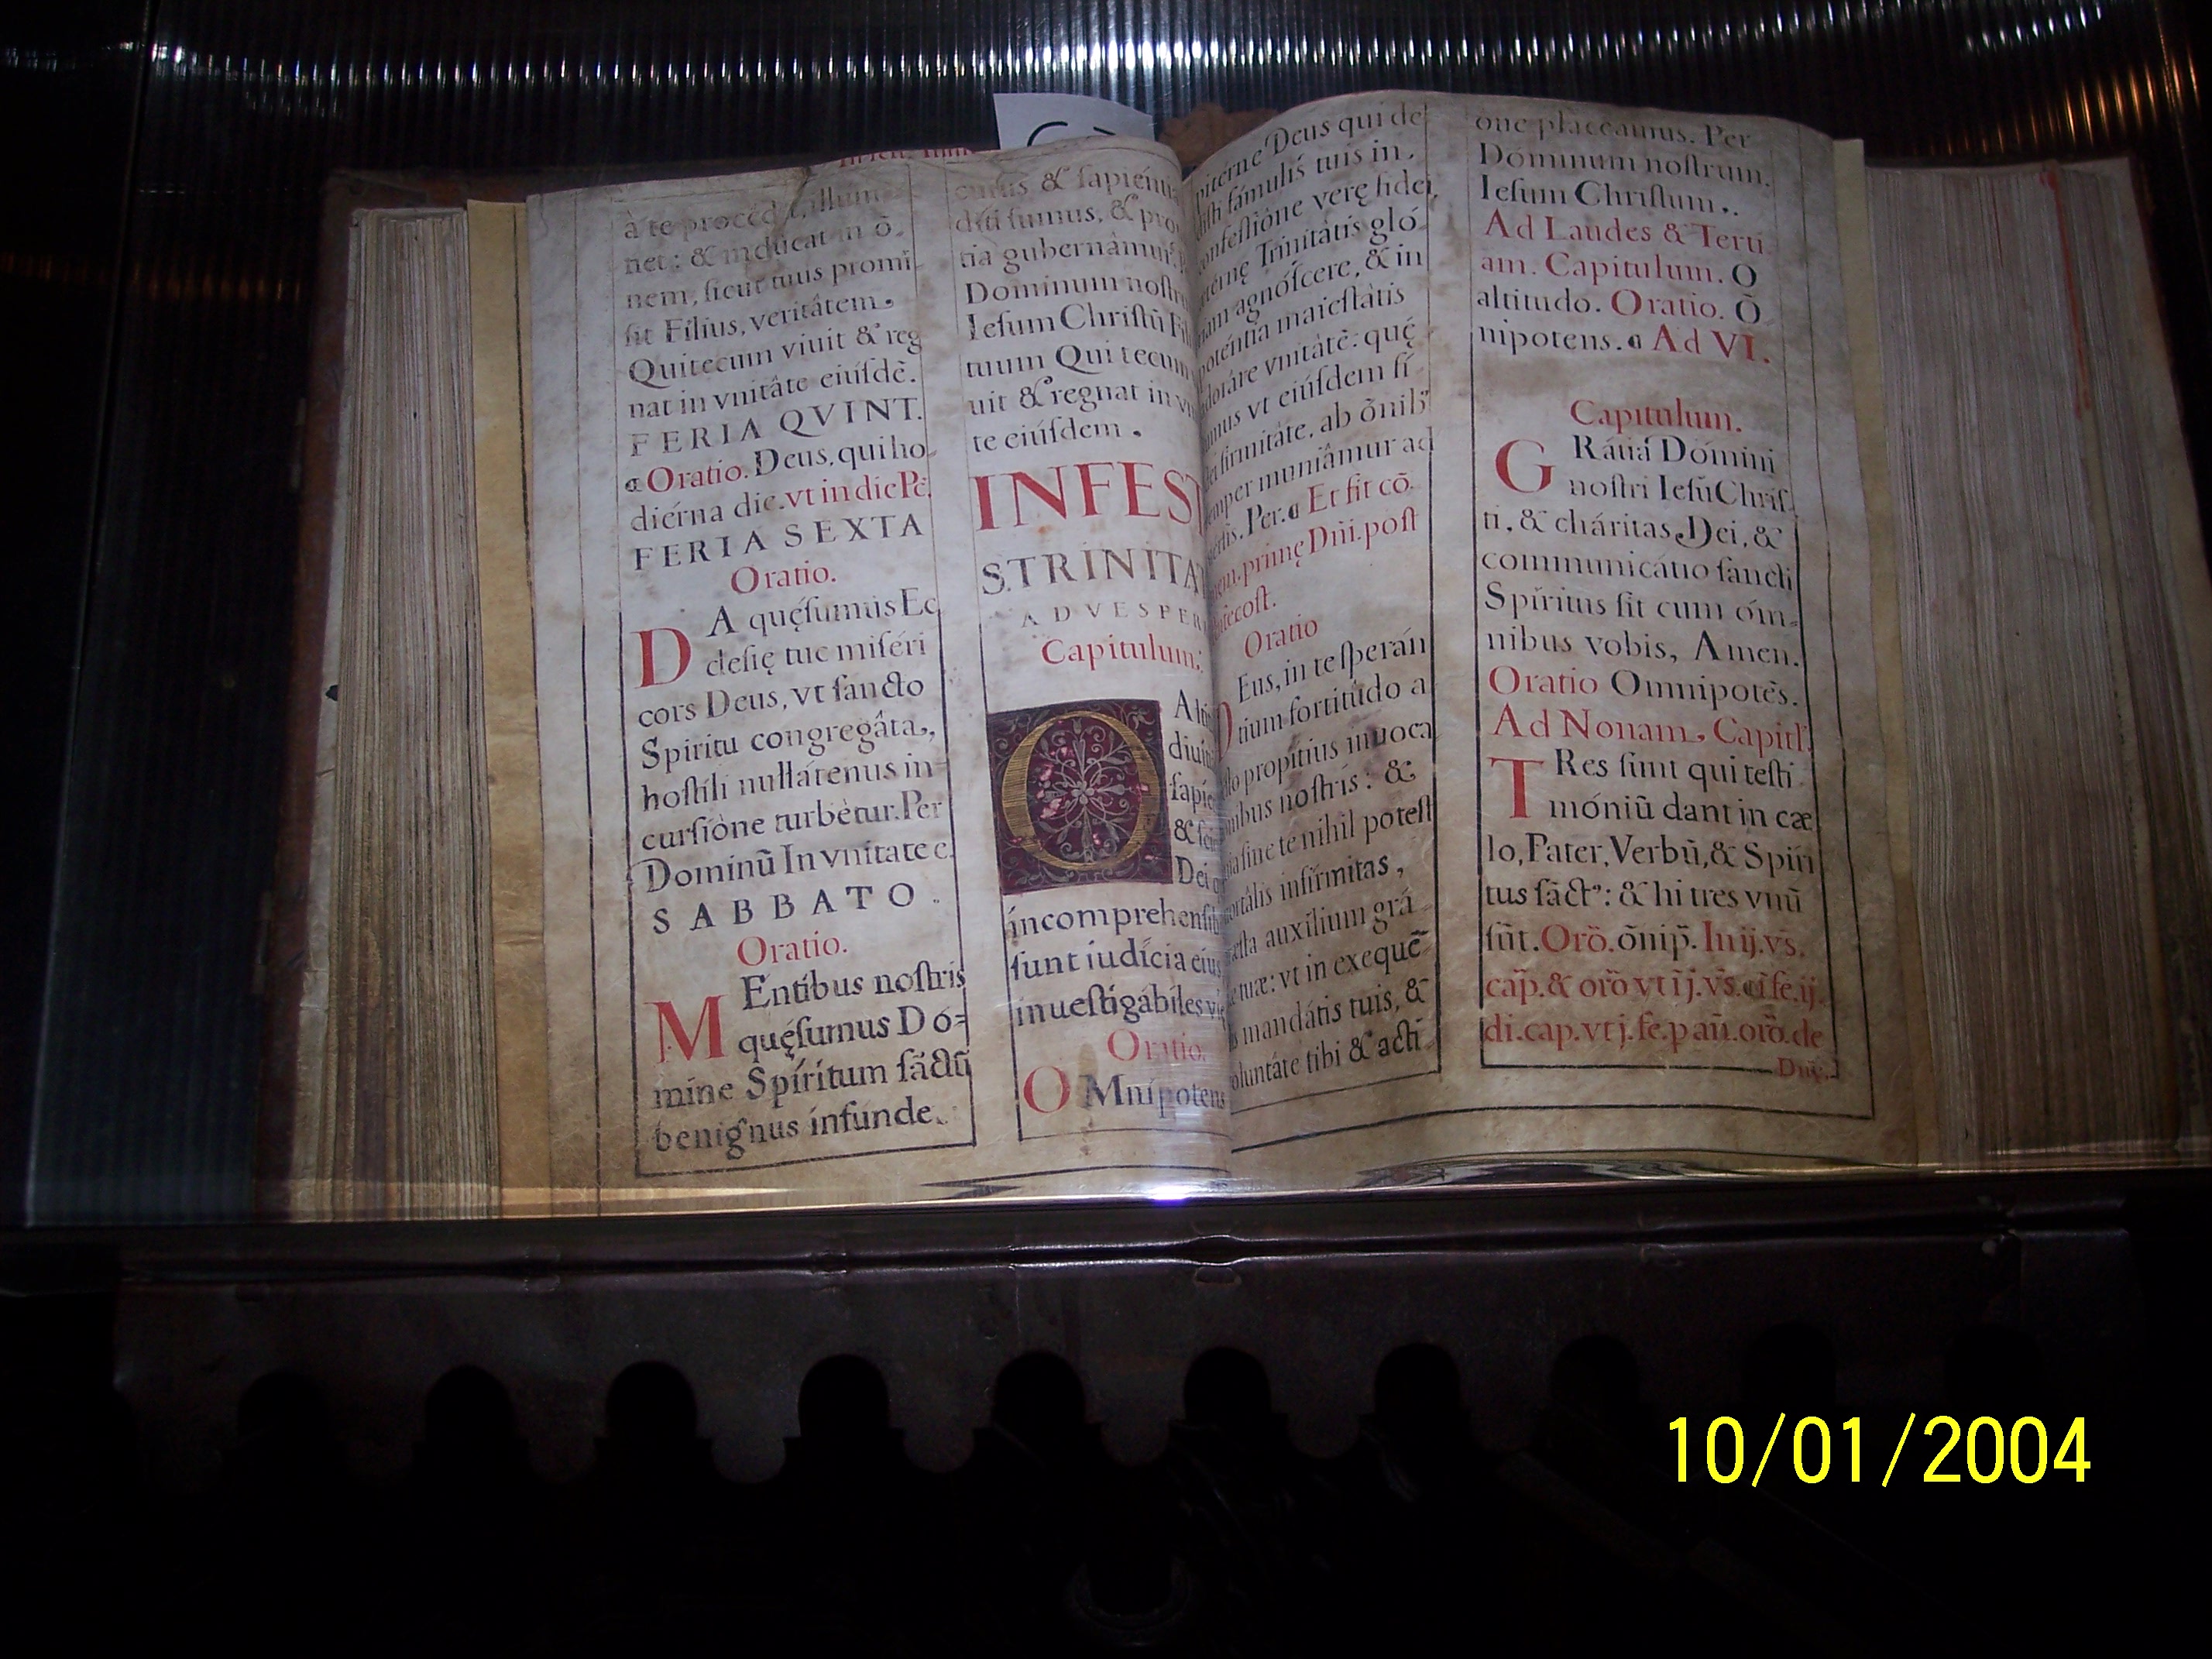 à te procedit, illum
net: & inducat in õ.
nem, sicut tuus promi
sit Filius, veritâtem.
Qui tecum viuit & reg
nat in vnitâte eiúsdē.
FERIA QVINT.
Oratio. Deus, qui ho
diérna die. vt in die Pē.
FERIA SEXTA
Oratio.
DA quęsumus Ec
clesię tuę miséri
cors Deus, vt sancto
Spiritu congregâta,
hostíli nullátenus in
cursiòne turbètur. Per
Dominũ In vnitate e.
SABBATO.
Oratio.
MEntibus nostris
quęsumus Dó=
mine Spíritum sáctũ
benignus infunde.
& sapiénti
diti sumus, & pro
tia gubernàmur.
Dominum nostru
Iesum Christũ Fil
tuum Qui tecum
uit & regnat in vn
te eiúsdem.
IN FEST
S. TRINITAT
AD VESPER
Capitulum.
O Alti
diuit
sapie
& sci
Dei
íncomprehensib
sunt iudícia eius
inuestigábiles vię
Oratio.
OMnipotens
pitérne Deus qui de
disti fámulis tuis in,
confessióne verę fidei,
ętérnę Trinitâtis gló
riam agnóscere, & in
poténtia maiestàtis
adoráre vnitâtē: quę
sumus vt eiúsdem fi
dei firmitâte, ab õnib
semper muniâmur ad
uérsis. Per. Et fit cõ.
mem. primę Dñi. post
Pentecost.
Oratio
DEus, in te sperán
tium fortitúdo a
désto propitius inuoca
tiónibus nostris: &
quia sine te nihil potest
mortális infirmitas,
præsta auxilium grá
tiæ tuæ: vt in exequē
dis mandátis tuis, &
voluntáte tibi & acti
óne placeámus. Per
Dóminum nostrum,
Iesum Christum.
Ad Laudes & Terti
am. Capitulum. O
altitudo. Oratio. Õ
nipotens. Ad VI.
Capitulum.
GRátiá Dómini
nostri Iesũ Chris
ti, & cháritas Dei, &
communicátio sancti
Spíritus sit cum óm
nibus vobis, Amen.
Oratio Omnipotēs.
Ad Nonam, Capitl'.
TRes sunt qui testi
móniũ dant in cæ
lo, Pater, Verbũ, & Spíri
tus sáct9: & hi tres vnũ
sũt. Orõ. õnip̃. In ij. vs̃.
cap̃. & orõ vt i j. vs̃. fe. ij.
di. cap. vt j. fe. p añ. orõ. de
Dñę.
10/01/2004